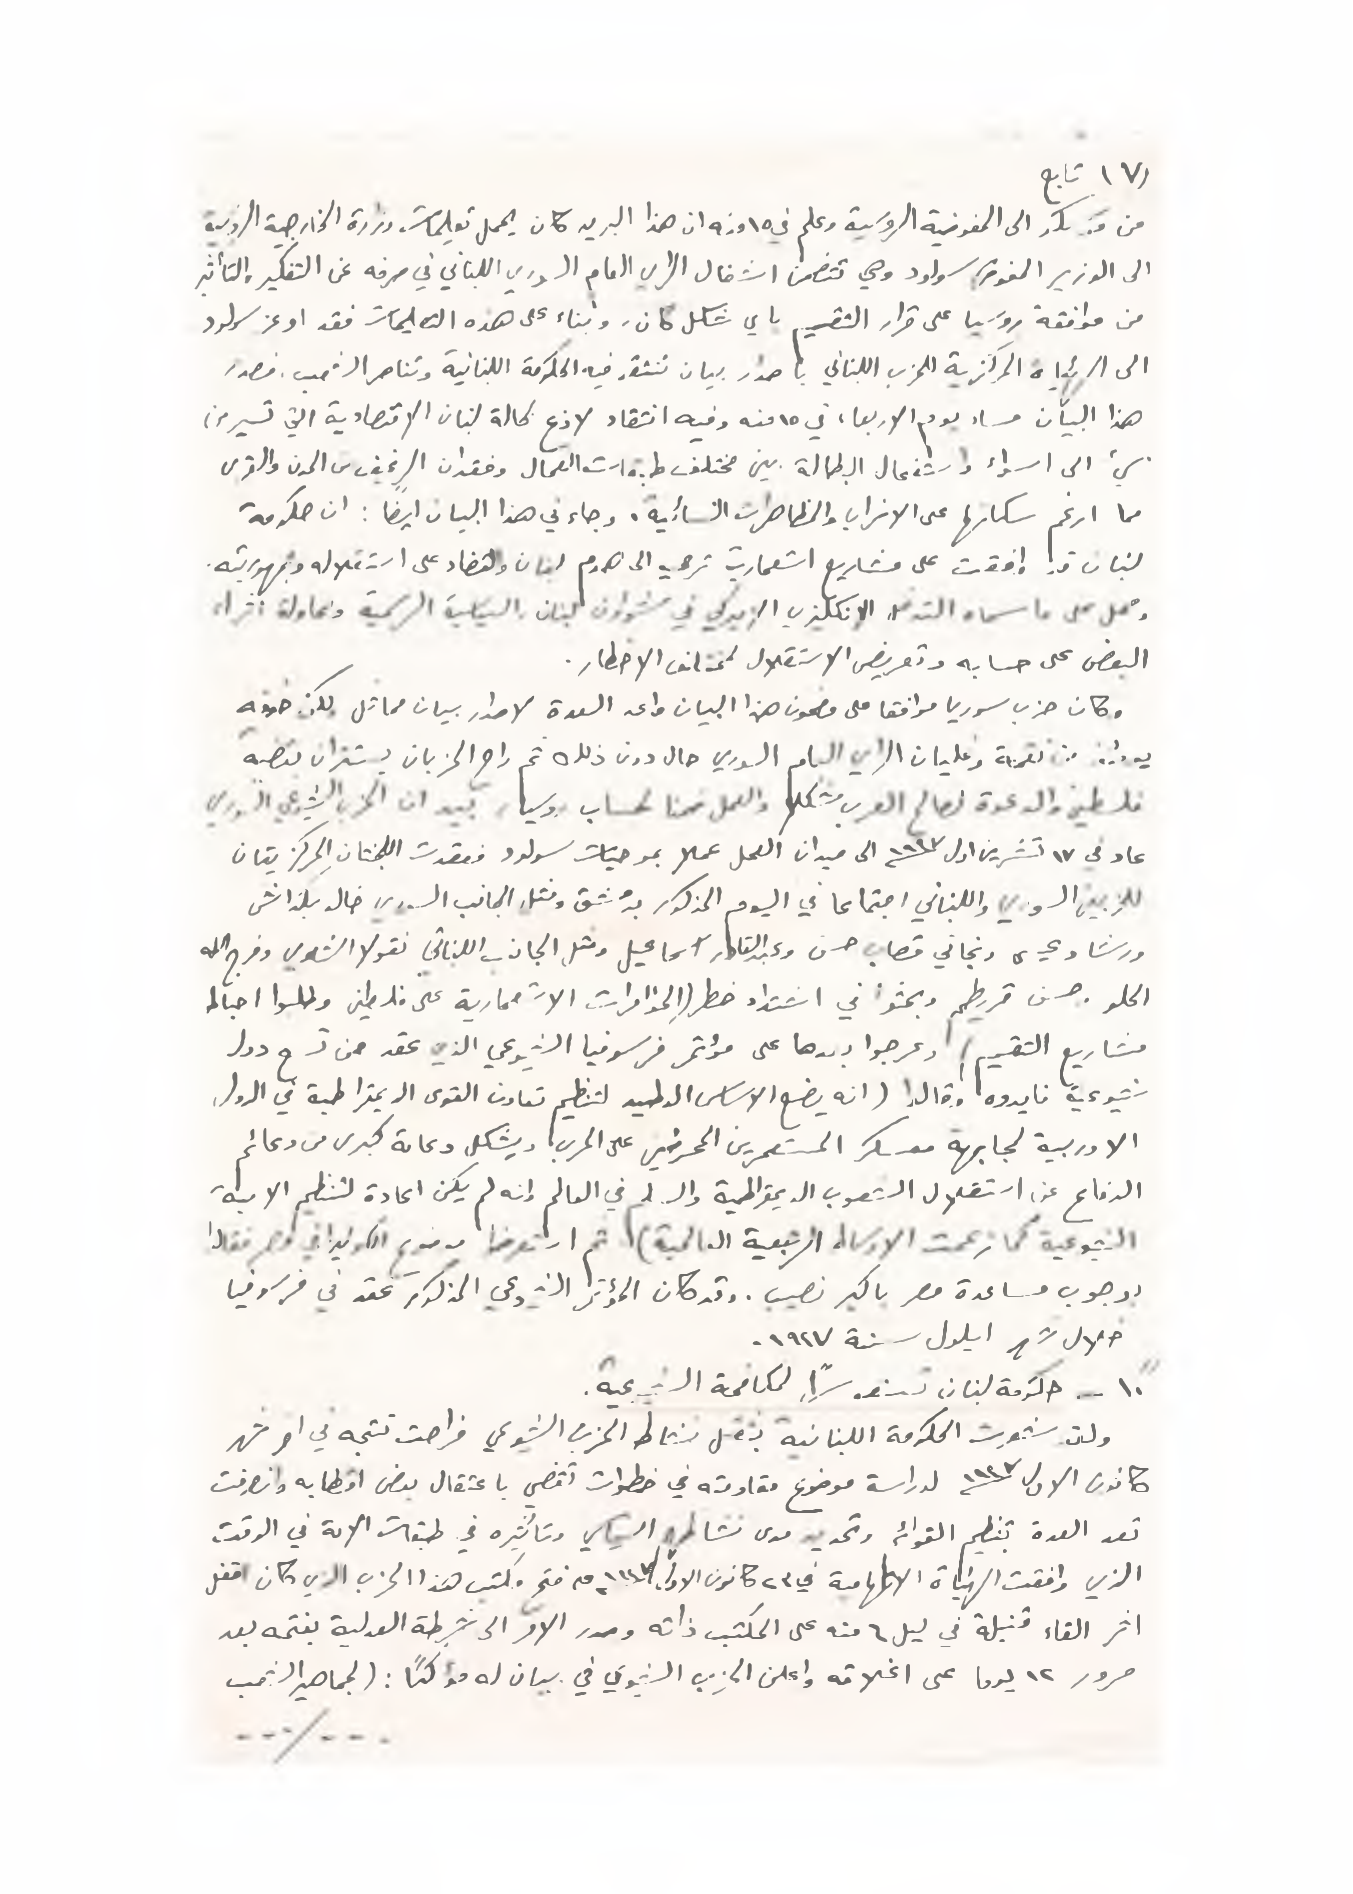 (١٧ تابع
من الى المفوضية الروسية وعلم في ١٥ منه ان هذا البريد كان يحمل تعليمات وزارة الخارجية الروسية
الى الوزير المفوض سولود وهي تتضمن اشغال الراي العام السوري اللبناني في صرفه عن التفكير والتأثير
من موافقة روسيا على قرار التقسيم باي شكل كان، وبناء على هذه التعليمات فقد اوعز سولود
الى الهيئة المركزية للحزب اللبناني باصدار بيان تنتقد فيه الحكومة اللبنانية وتناصر الشعب، فصدر
هذا البيان مساء يوم الاربعاء في ١٥ منه وفيه انتقاد لاذع لحالة لبنان الاقتصادية التي تسير من
سيء الى اسواء واستفحال البطالة بين مختلف طبقات العمال وفقدان الرغيف من المدن والقرى
مما ارغم سكانها على الاضراب والمظاهرات النسائية، وجاء في هذا البيان ايضاً : ان حكومة
لبنان قد وافقت على مشاريع استعمارية ترمي الى هدم لبنان والقضاء على استقلاله وجمهوريته.
وحمل على ما سماه التدخل الانكليزي الاميركي في شؤون لبنان السياسية الرسمية ومحاولة اثراء
البعض على حسابه وتعريض الاستقلال لمختلف الاخطار.
وكان حزب سوريا موافقا على مضمون هذا البيان واعد العدة لاصدار بيان مماثل لكن خوفه
من نقمة وغليان الراي العام السوري حال دون ذلك ثم راح الحزبان يستتران بقضية
فلسطين والدعوة لصالح العرب شكلا والعمل ضمنا لحساب روسيا، بيد ان الحزب الشيوعي السوري
عاد في ١٧ تشرين اول ١٩٤٧ الى ميدان العمل عملا بموحيات سولود فعقدت اللجنتان المركزيتان
للحزبين السوري واللبناني اجتماعا في اليوم المذكور بدمشق ومثل الجانب السوري خالد بكداش
ورشاد عيسى ونجاتي قصاب حسن وعبد القادر اسماعيل ومثل الجانب اللبناني نقولا الشاوي وفرج الله
الحلو وحسن قريطم وبحثوا في اشتداد خطر (المؤامرات الاستعمارية على فلسطين وطلبوا احباط
مشاريع التقسيم) وعرجوا بعدها على مؤتمر فرسوفيا الشيوعي الذي عقد من تسع دول
شيوعية فايدوه وقالوا (انه يضع الاساس الوطيد لتنظيم تعاون القوى الديمقراطية في الدول
الاوربية لمجابهة معسكر المستعمرين المحرضين على الحرب ويشكل دعامة كبرى من دعائم
الدفاع عن استقلال الشعوب الديمقراطية والسلم في العالم وانه لم يكن اعادة لتنظيم الاممية
الشيوعية كما زعمت الاوساط الرجعية العالمية) ثم استعرضا موضوع الكوليرا في مصر فقالا
بوجوب مساعدة مصر باكبر نصيب. وقد كان المؤتمر الشيوعي المذكور عقد في فرسوفيا
خلال شهر ايلول سنة ١٩٤٧.
١٠ - حكومة لبنان تستعد سرًا لمكافحة الشيوعية.
ولقد شعرت الحكومة اللبنانية بثقل نشاط الحزب الشيوعي فراحت تتجه في اواخر شهر
كانون الاول ١٩٤٧ لدراسة موضوع مقاومته في خطوات تقضي باعتقال بعض اقطابه وانصرفت
تعد العدة بتنظيم القوائم وتحديد مدى نشاطهم السياسي وتأثيره في طبقات الامة في الوقت
الذي وافقت الهيئة الاتهامية في ٢٣ كانون الاول ١٩٤٧ على فتح مكتب هذا الحزب الذي كان اقفل
اثر القاء قنبلة في ليل ٦ منه على المكتب ذاته وصدر الامر الى شرطة العدلية بفتحه بعد
مرور ١٢ يوما على اغلاقه واعلن الحزب الشيوعي في بيان له مؤكدًا : (لجماهير الشعب
---/---